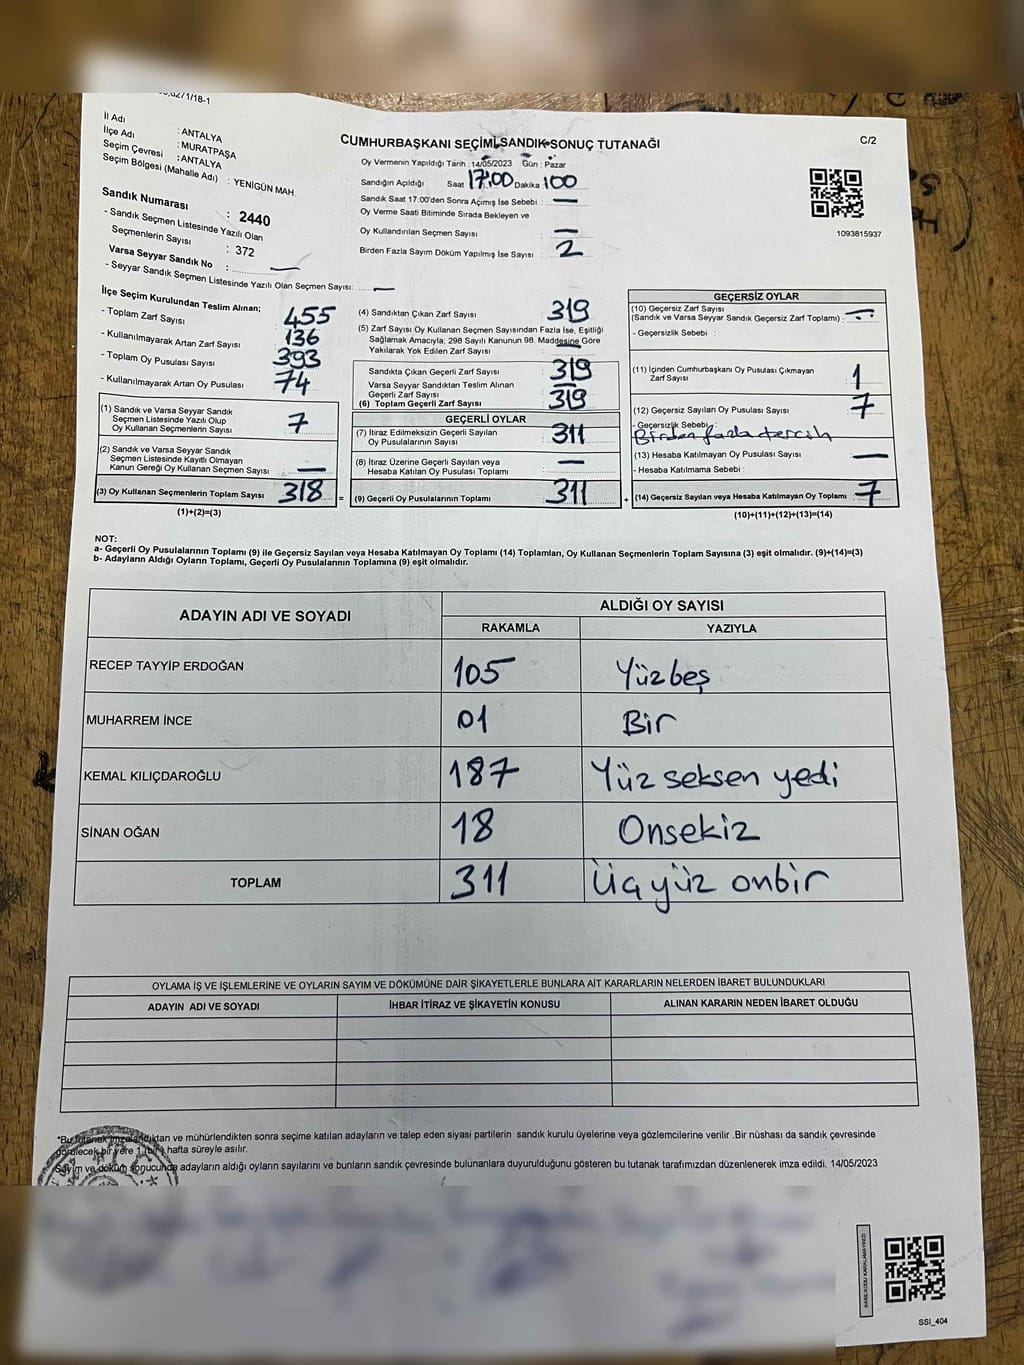 C/2
İl Adı : ANTALYA
İlçe Adı : MURATPAŞA
Seçim Çevresi : ANTALYA
Seçim Bölgesi (Mahalle Adı) : YENİGÜN MAH.
Sandık Numarası : 2440
- Sandık Seçmen Listesinde Yazılı Olan
Seçmenlerin Sayısı : 372
Varsa Seyyar Sandık No : —
- Seyyar Sandık Seçmen Listesinde Yazılı Olan Seçmen Sayısı: —
CUMHURBAŞKANI SEÇİMİ SANDIK SONUÇ TUTANAĞI
Oy Vermenin Yapıldığı Tarih : 14/05/2023 Gün : Pazar
Sandığın Açıldığı Saat 17:00 Dakika :00
Sandık Saat 17:00'den Sonra Açımış İse Sebebi : —
Oy Verme Saati Bitiminde Sırada Bekleyen ve
Oy Kullandırılan Seçmen Sayısı —
Birden Fazla Sayım Döküm Yapılmış İse Sayısı : 2
1093815937
İlçe Seçim Kurulundan Teslim Alınan;
- Toplam Zarf Sayısı : 455
- Kullanılmayarak Artan Zarf Sayısı : 136
- Toplam Oy Pusulası Sayısı : 393
- Kullanılmayarak Artan Oy Pusulası : 74
(1) Sandık ve Varsa Seyyar Sandık
Seçmen Listesinde Yazılı Olup
Oy Kullanan Seçmenlerin Sayısı : 7
(2) Sandık ve Varsa Seyyar Sandık
Seçmen Listesinde Kayıtlı Olmayan
Kanun Gereği Oy Kullanan Seçmen Sayısı : —
(3) Oy Kullanan Seçmenlerin Toplam Sayısı : 318 =
(1)+(2)=(3)
(4) Sandıktan Çıkan Zarf Sayısı : 319
(5) Zarf Sayısı Oy Kullanan Seçmen Sayısından Fazla İse, Eşitliği
Sağlamak Amacıyla; 298 Sayılı Kanunun 98. Maddesine Göre
Yakılarak Yok Edilen Zarf Sayısı : —
Sandıkta Çıkan Geçerli Zarf Sayısı : 319
Varsa Seyyar Sandıktan Teslim Alınan
Geçerli Zarf Sayısı : —
(6) Toplam Geçerli Zarf Sayısı : 319
GEÇERLİ OYLAR
(7) İtiraz Edilmeksizin Geçerli Sayılan
Oy Pusulalarının Sayısı : 311
(8) İtiraz Üzerine Geçerli Sayılan veya
Hesaba Katılan Oy Pusulası Toplamı : —
(9) Geçerli Oy Pusulalarının Toplamı : 311 +
GEÇERSİZ OYLAR
(10) Geçersiz Zarf Sayısı
(Sandık ve Varsa Seyyar Sandık Geçersiz Zarf Toplamı) : —
- Geçersizlik Sebebi :
(11) İçinden Cumhurbaşkanı Oy Pusulası Çıkmayan
Zarf Sayısı : 1
(12) Geçersiz Sayılan Oy Pusulası Sayısı : 7
- Geçersizlik Sebebi :
Birden fazla tercih
(13) Hesaba Katılmayan Oy Pusulası Sayısı : —
- Hesaba Katılmama Sebebi :
(14) Geçersiz Sayılan veya Hesaba Katılmayan Oy Toplamı : 7
(10)+(11)+(12)+(13)=(14)
NOT:
a- Geçerli Oy Pusulalarının Toplamı (9) ile Geçersiz Sayılan veya Hesaba Katılmayan Oy Toplamı (14) Toplamları, Oy Kullanan Seçmenlerin Toplam Sayısına (3) eşit olmalıdır. (9)+(14)=(3)
b- Adayların Aldığı Oyların Toplamı, Geçerli Oy Pusulalarının Toplamına (9) eşit olmalıdır.
ADAYIN ADI VE SOYADI
ALDIĞI OY SAYISI
RAKAMLA YAZIYLA
RECEP TAYYİP ERDOĞAN 105 Yüzbeş
MUHARREM İNCE 01 Bir
KEMAL KILIÇDAROĞLU 187 Yüz seksen yedi
SİNAN OĞAN 18 Onsekiz
TOPLAM 311 Üçyüz onbir
OYLAMA İŞ VE İŞLEMLERİNE VE OYLARIN SAYIM VE DÖKÜMÜNE DAİR ŞİKAYETLERLE BUNLARA AİT KARARLARIN NELERDEN İBARET BULUNDUKLARI
ADAYIN ADI VE SOYADI İHBAR İTİRAZ VE ŞİKAYETİN KONUSU ALINAN KARARIN NEDEN İBARET OLDUĞU
*Bu tutanak imzalandıktan ve mühürlendikten sonra seçime katılan adayların ve talep eden siyasi partilerin sandık kurulu üyelerine veya gözlemcilerine verilir .Bir nüshası da sandık çevresinde
görülecek bir yere 1 (bir) hafta süreyle asılır.
Sayım ve döküm sonucunda adayların aldığı oyların sayılarını ve bunların sandık çevresinde bulunanlara duyurulduğunu gösteren bu tutanak tarafımızdan düzenlenerek imza edildi. 14/05/2023
SSI_404